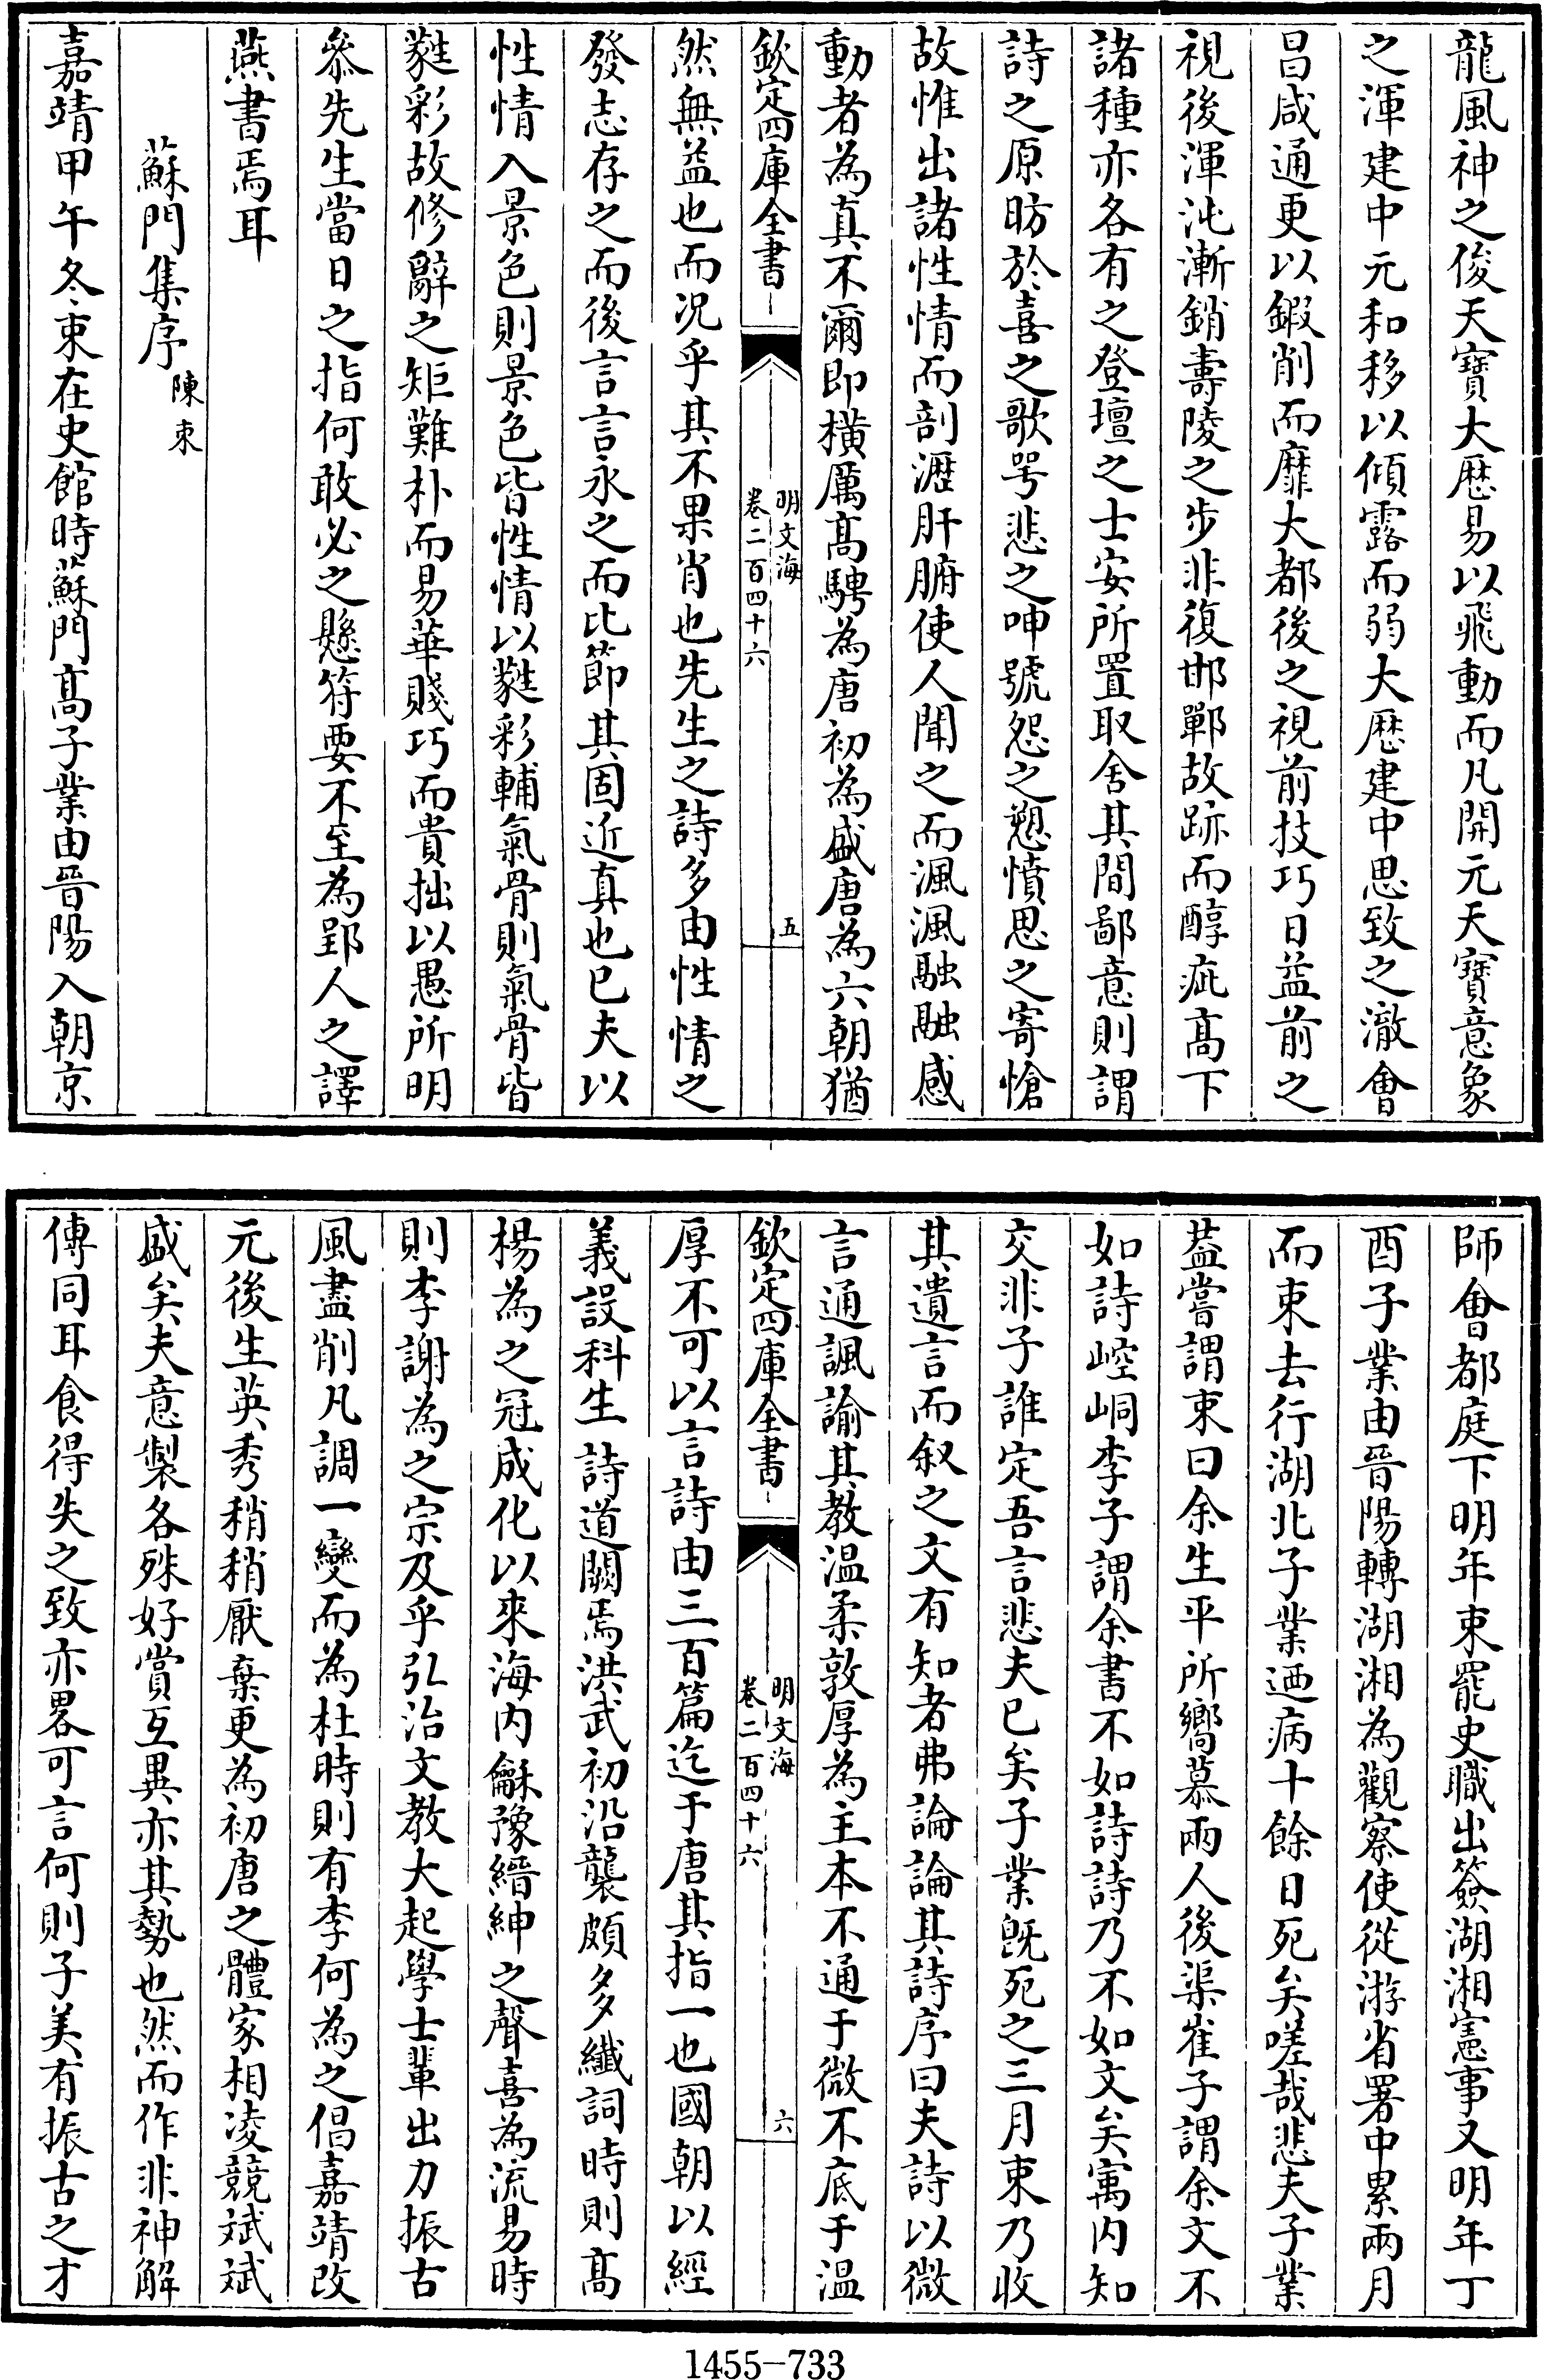 龍風神之俊天寶大厯易以飛動而凡開元天寶意象
之渾建中元和移以傾露而弱大厯建中思致之澈會
昌咸通更以鍛削而靡大都後之視前技巧日益前之
視後渾沌漸銷壽陵之步非復邯鄲故跡而醇疵髙下
諸種亦各有之登壇之士安所置取舍其間鄙意則謂
詩之原昉於喜之歌号悲之呻號怨之愬憤思之寄愴
故惟出諸性情而剖瀝肝腑使人聞之而渢渢融融感
動者為真不爾即横厲髙騁為唐初為盛唐為六朝猶
欽定四庫全書
明文海
卷二百四十六
五
然無益也而况乎其不果肖也先生之詩多由性情之
發志存之而後言言永之而比節其固近真也已夫以
性情入景色則景色皆性情以蕤彩輔氣骨則氣骨皆
蕤彩故修辭之矩難朴而易華賤巧而貴拙以愚所明
叅先生當日之指何敢必之懸符要不至為郢人之譯
燕書焉耳
蘇門集序陳束
嘉靖甲午冬束在史館時蘇門髙子業由晉陽入朝京
師會都庭下明年束罷史職出簽湖湘憲事又明年丁
酉子業由晉陽轉湖湘為觀察使從游省署中累兩月
而束去行湖北子業迺病十餘日死矣嗟哉悲夫子業
葢嘗謂束曰余生平所嚮慕兩人後渠崔子謂余文不
如詩崆峒李子謂余書不如詩詩乃不如文矣寓内知
交非子誰定吾言悲夫已矣子業既死之三月束乃收
其遺言而叙之文有知者弗論論其詩序曰夫詩以微
言通諷諭其教温柔敦厚為主本不通于微不底于温
欽定四庫全書
明文海
卷二百四十六
六
厚不可以言詩由三百篇迄于唐其指一也國朝以經
義設科生詩道闕焉洪武初沿襲頗多纖詞時則髙
楊為之冠成化以來海内龢豫縉紳之聲喜為流易時
則李謝為之宗及乎弘治文教大起學士輩出力振古
風盡削凡調一變而為杜時則有李何為之倡嘉靖改
元後生英秀稍稍厭棄更為初唐之體家相凌競斌斌
盛矣夫意製各殊好賞互異亦其勢也然而作非神解
傳同耳食得失之致亦畧可言何則子美有振古之才
1455-733